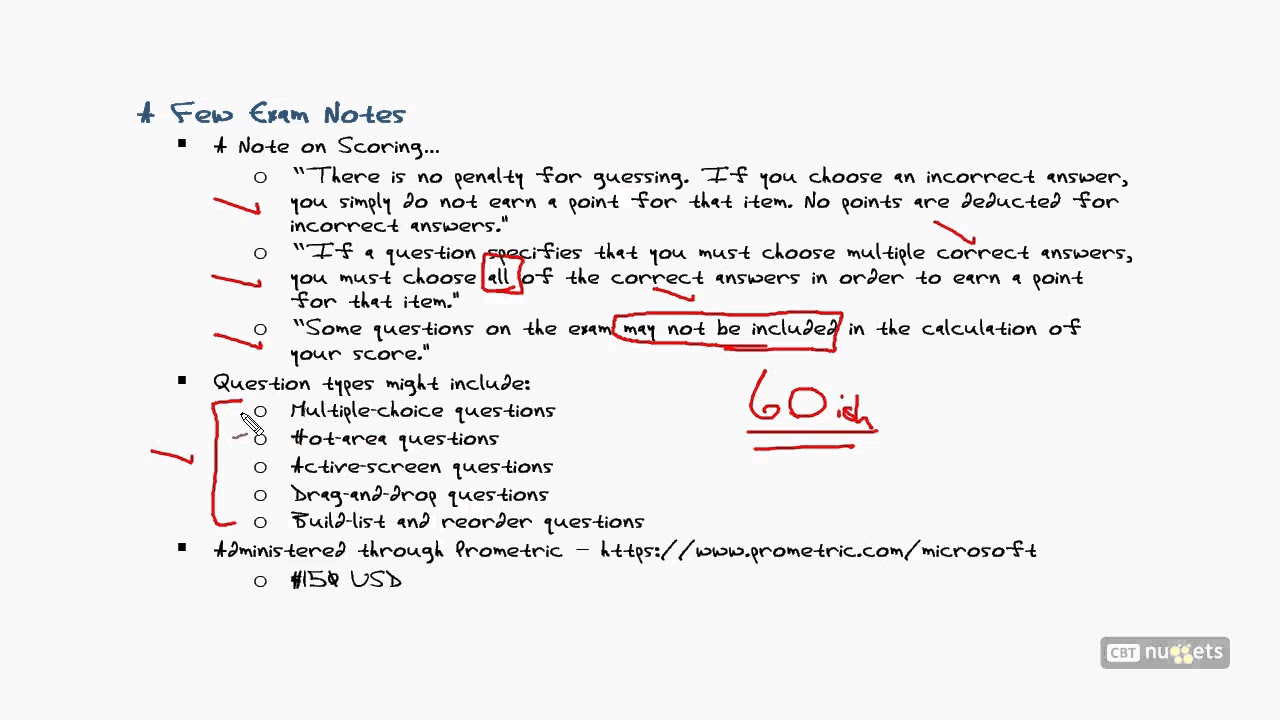 A Few Exam Notes
A Note on Scoring...
"There is no penalty for guessing. If you choose an incorrect answer,
you simply do not earn a point for that item. No points are deducted for
incorrect answers."
"If a question specifies that you must choose multiple correct answers,
you must choose all of the correct answers in order to earn a point
for that item."
"Some questions on the exam may not be included in the calculation of
your score."
Question types might include:
Multiple-choice questions
60 ish
Hot-area questions
Active-screen questions
Drag-and-drop questions
Build-list and reorder questions
Administered through Prometric – https://www.prometric.com/microsoft
$150 USD
CBT nuggets